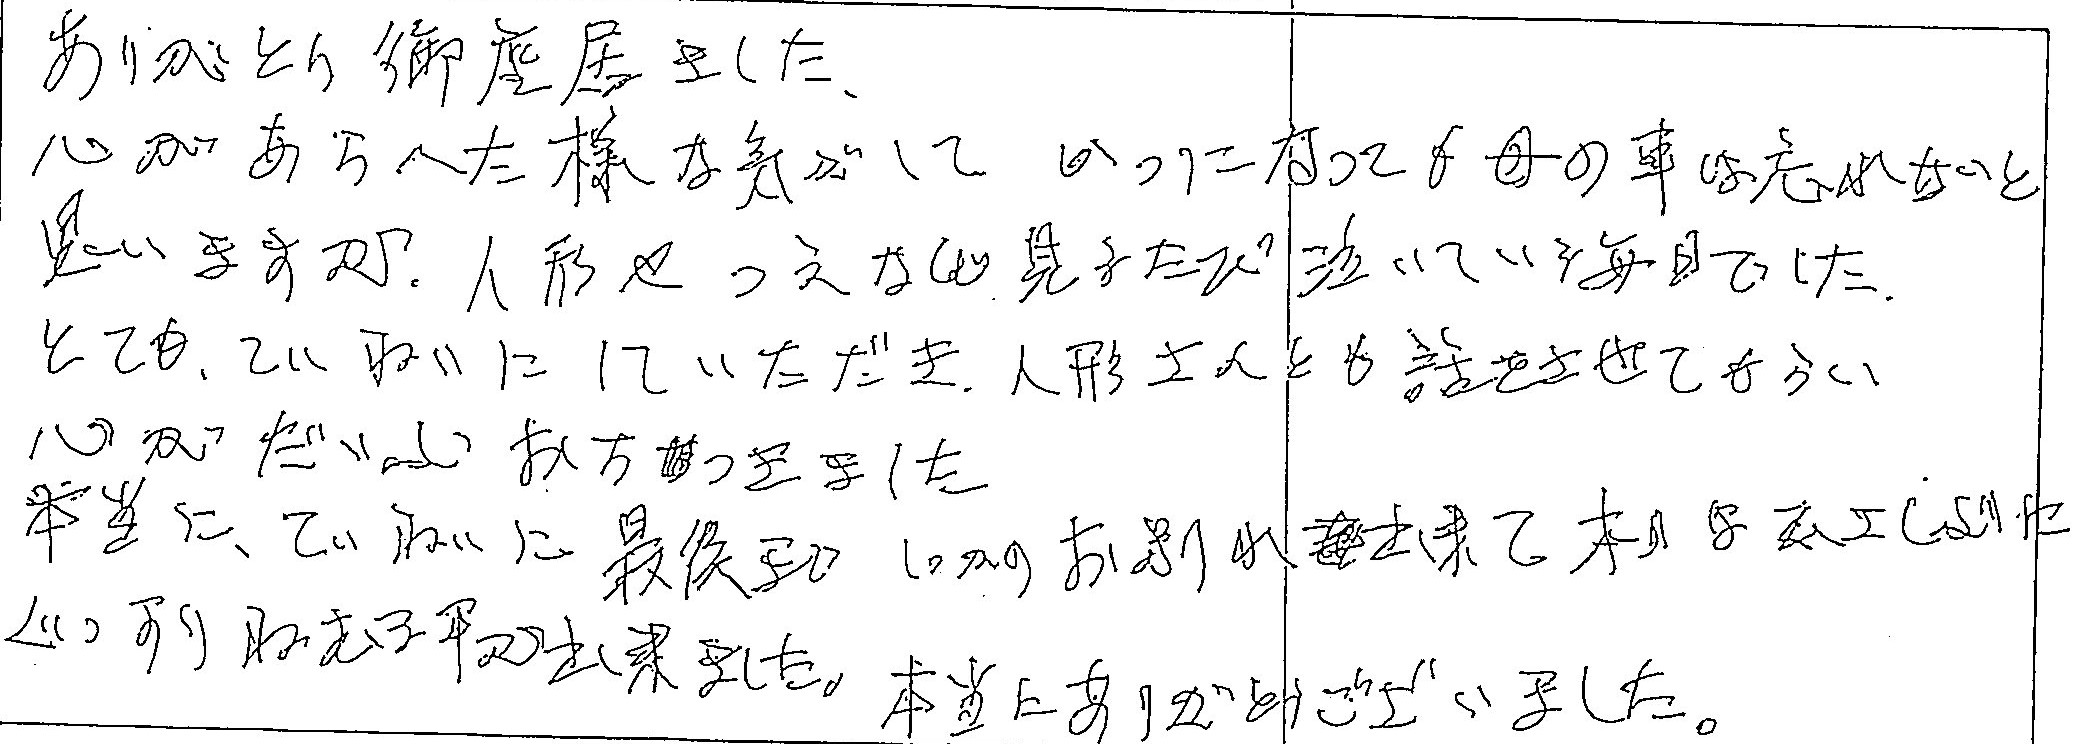 ありがとう御座居ました、
心があらへた様な気がして いつに有っても母の事は忘れないと
思いますが、人形やつえなど見るたび泣いている毎日でした。
とても、ていねいにしていただき、人形さんとも話をさせてもらい
心がだいぶおちつきました
本当に、ていねいに最後まで しっかりお別れ出来て 本日は久しぶりに
ぐっすりねむる事が出来ました。本当にありがとうございました。